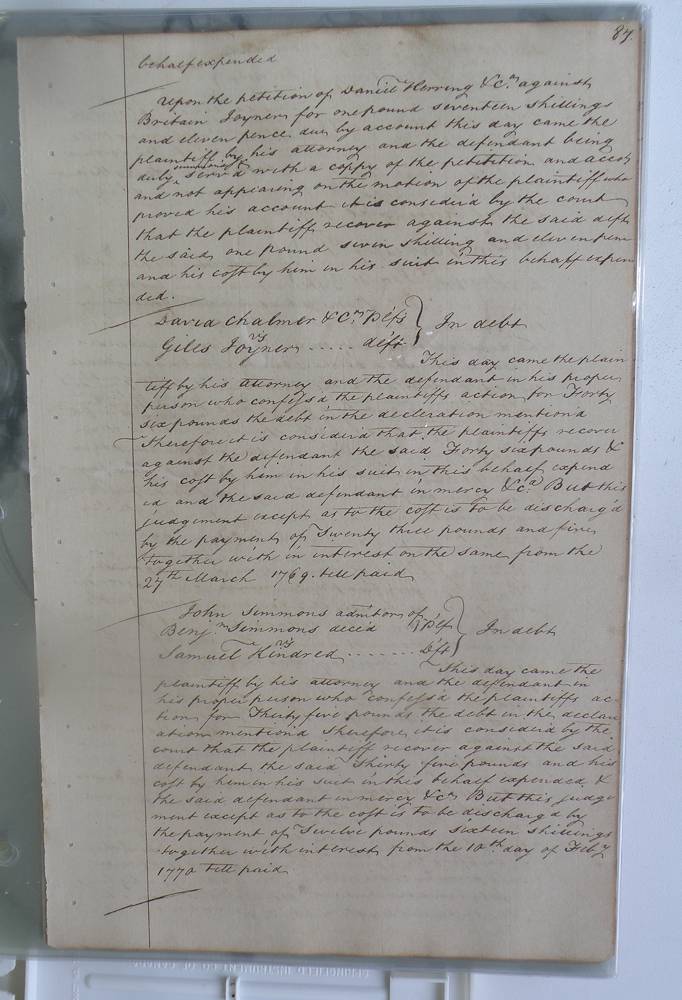 87.
behalf expended
Upon the petition of Daniel Herring & Co. against
Britain Joyner for one pound seventeen shillings
and eleven pence due by account this day came the
plaintiff by his attorney and the defendant being
duly serv'd with a coppy of the petition and accot
and not appearing on the motion of the plaintiff who
proved his account it is consider'd by the court
that the plaintiff recover against the said deft
the said one pound seven shilling and eleven pence
and his cost by him in his suit in this behalf expen
ded.
David Chalmer & Co. Plfs } In debt
vs
Giles Joyner ..... deft
This day came the plain
tiff by his attorney and the defendant in his proper
person who confess'd the plaintiffs action for Forty
six pounds the debt in the decleration mention'd
Therefore it is considerd that the plaintiffs recover
against the defendant the said Forty six pounds &
his cost by him in his suit in this behalf expend
ed and the said defendant in mercy &ca. But this
judgement except as to the cost is to be discharg'd
by the payment of Twenty three pounds and five
together with in interest on the same from the
27th March 1769. till paid
John Simmons admtor of
Benjn. Simmons dece'd } Plf } In debt
vs
Samuel Kindred ....... Dft
This day came the
plaintiff by his attorney and the defendant in
his proper person who confess'd the plaintiffs ac-
tion for Thirty five pounds the debt in the declar
ation mention'd Therefore it is consider'd by the
court that the plaintiff recover against the said
defendant the said Thirty five pounds and his
cost by him in his suit in this behalf expended &
the said defendant in mercy &c. But this judge
ment except as to the cost is to be discharg'd by
the payment of Twelve pounds sixteen shillings
together with interest from the 10th. day of Feby
1770 till paid